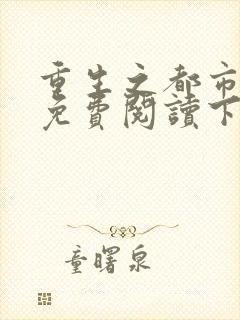 重生之都市
免費閱讀下
童曙泉